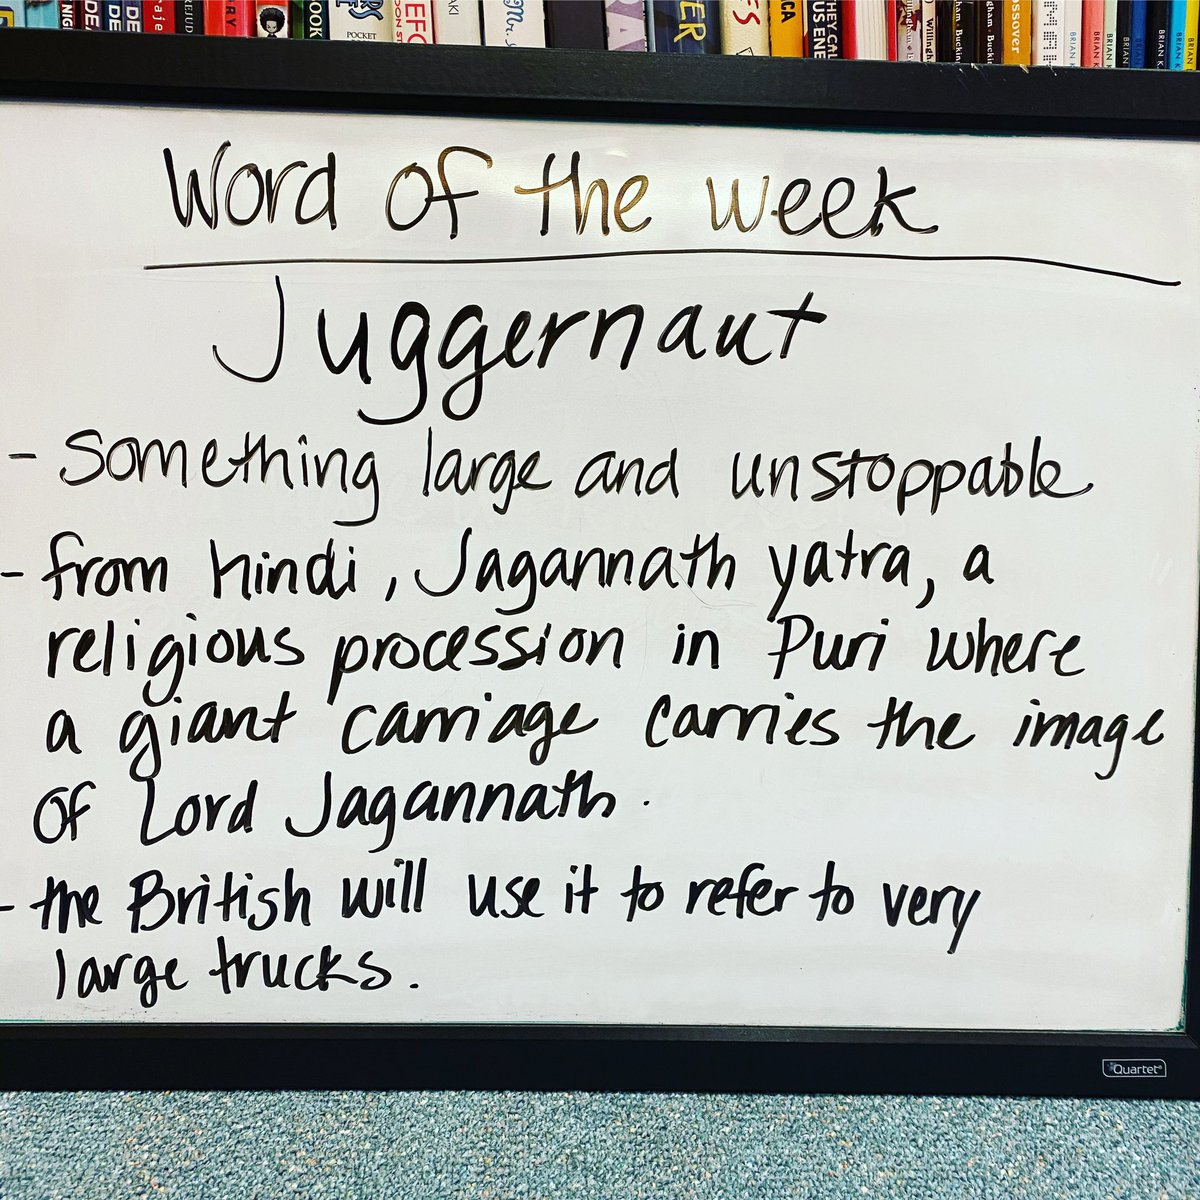 Word of the week
Juggernaut
- Something large and unstoppable
- from hindi, Jagannath yatra, a
religious procession in Puri where
a giant carriage carries the image
of Lord Jagannath.
- the British will use it to refer to very
large trucks.
Quartet